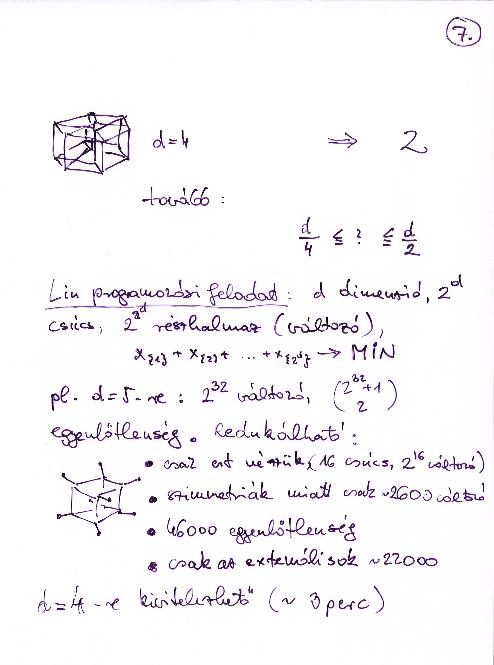 7.
d=4 ⇒ 2
tovább :
d/4 ≦ ? ≦ d/2
Lin programozási feladat : d dimenzió, 2^d
csúcs, 2^2^d részhalmaz (változó),
x_{1} + x_{2} + ... + x_{2^d} → MIN
pl. d=5-re : 2^32 változó, (2^32+1 2)
egyenlőtlenség. Redukálható :
• csak ezt nézzük (16 csúcs, 2^16 változó)
• szimmetriák miatt csak ~2600 változó
• 46000 egyenlőtlenség
• csak az extemálisok ~22000
d=4-re kivitelezhető (~ 3 perc)